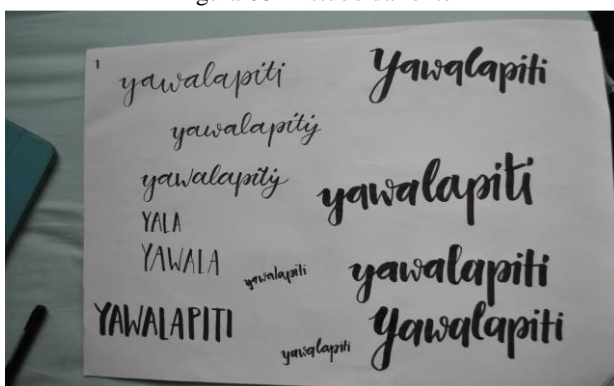 1
yawalapiti
yawalapitÿ
yawalapitÿ
YALA
YAWALA
yawalapiti
YAWALAPITI
yawalapiti
Yawalapiti
yawalapiti
yawalapiti
Yawalapiti